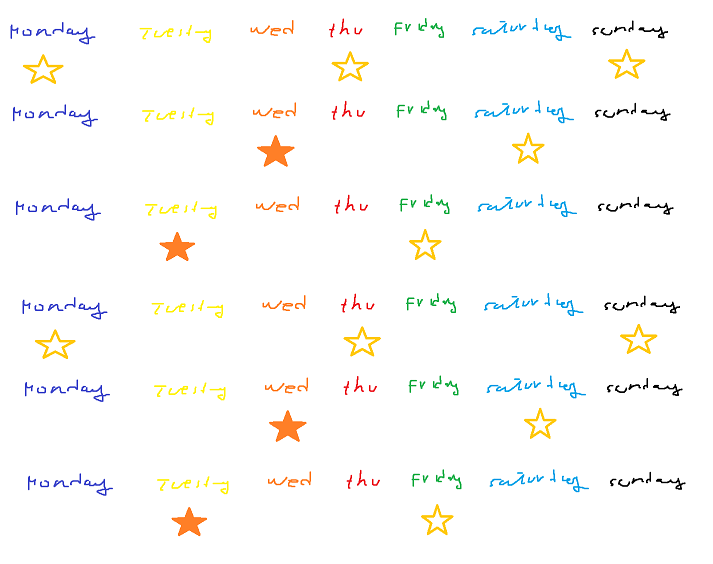 Monday Tuesday wed thu Friday saturday sunday
Monday Tuesday wed thu Friday saturday sunday
Monday Tuesday wed thu Friday saturday sunday
Monday Tuesday wed thu Friday saturday sunday
Monday Tuesday wed thu Friday saturday sunday
Monday Tuesday wed thu Friday saturday sunday